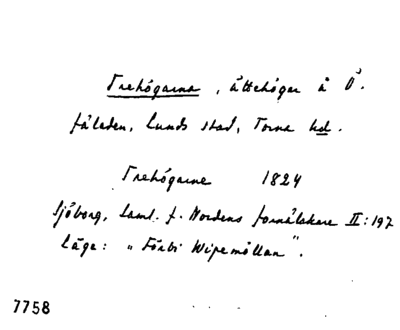 Trehögarna, ättehögar å Ö.
fäladen, Lunds stad, Torna hd.
Trehögarne 1824
Sjöborg, Saml. f. Nordens fornälskare II:197
Läge: "Förbi Wipemöllan".
7758